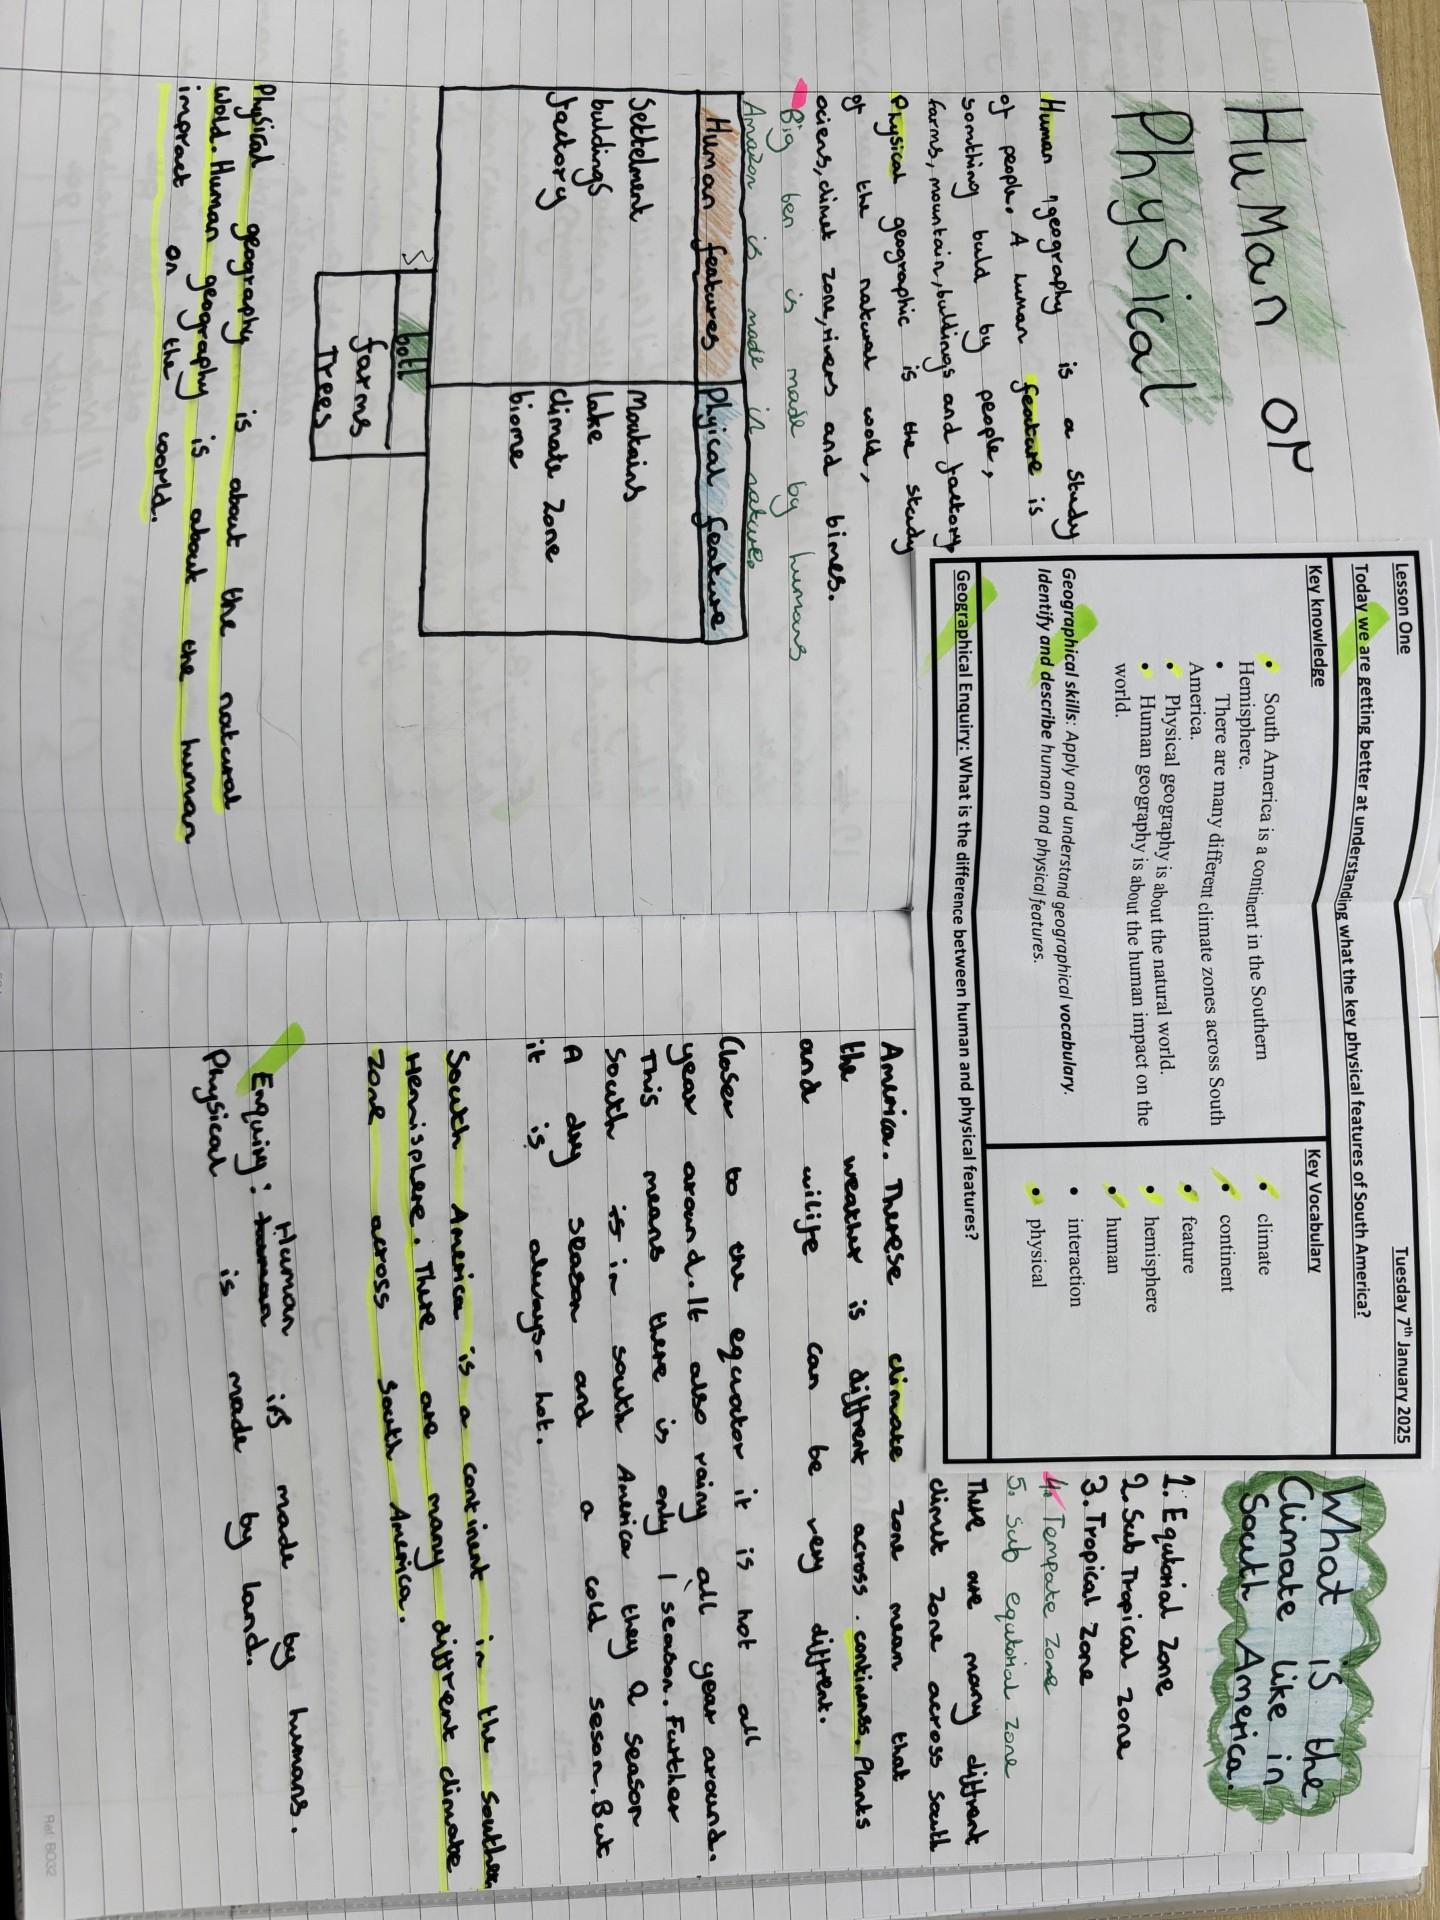 Lesson One
Tuesday 7th January 2025
Today we are getting better at understanding what the key physical features of South America?
Key knowledge
• South America is a continent in the Southern
Hemisphere.
• There are many different climate zones across South
America.
• Physical geography is about the natural world.
• Human geography is about the human impact on the
world.
Geographical skills: Apply and understand geographical vocabulary.
Identify and describe human and physical features.
Key Vocabulary
• climate
• continent
• feature
• hemisphere
• human
• interaction
• physical
Geographical Enquiry: What is the difference between human and physical features?
HuMan or
PhySical
Human geography is a study
of people. A human feature is
somthing buld by people,
farms, mountain, buldings and factory,
Physical geographic is the study
of the natural wold,
ociens, climet zone, rivers and bimes.
Big ben is made by humans
Amazon is made in nature.
Human features
Phyical feature
Settelment
buldings
factory
Moutains
lake
climate zone
biome
both
farms
Trees
Physical geography is about the natural
wold. Human geography is about the human
impract on the world.
What is the
Climate like in
South America.
1. Equtorial Zone
2. Sub Tropical zone
3. Tropical zone
4. Tempate zone
5. Sub equtorial zone
There are many diffrent
climet zone across South
America. Therese climate zone mean that
the weather is diffrent across. continens. Plants
and wilife can be very diffrent.
Closer to the equator it is hot all
year around. It also rainy all year around.
This means there is only 1 season. Further
South is in south America they 2 season
A dry season and a cold seson. But
it is always hot.
South America is a continent in the Southen
Hemisphere. There are many diffrent climate
zone across South America.
Human is made by humans.
Enquiry: human
Physical is made by land.
Ref. BO32